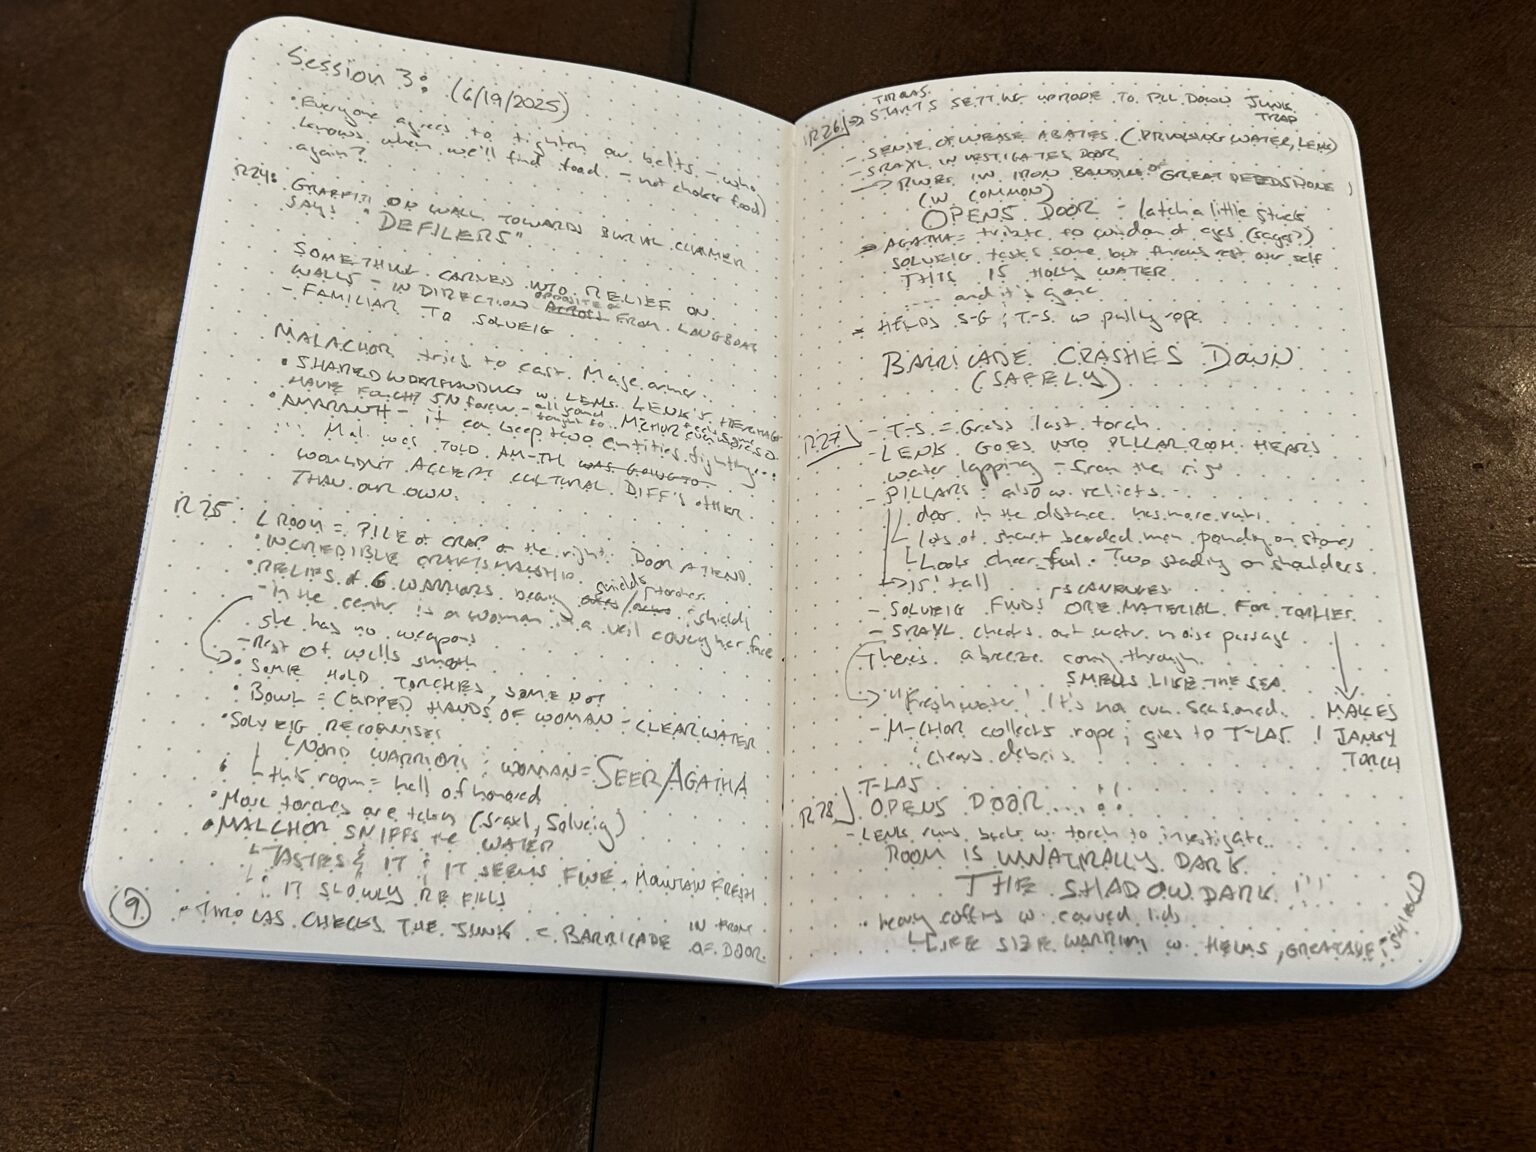 Session 3: (6/19/2025)
• Everyone agrees to tighten our belts - who
knows when we'll find food. - not choker food)
again?
R24: GRAFFITI ON WALL TOWARDS BURIAL CHAMER
SAYS "DEFILERS"
SOMETHING CARVED INTO RELIEF ON
WALLS - IN DIRECTION OPPOSITE OF FROM LONGBOAT
- FAMILIAR TO SOLVEIG
MALACHOR tries to cast Mage armor
• SHARED W. LENK. LENK'S HERITAGE
HAVE
• AMARANTH - it can keep two entities fighting...
Mal. was TOLD AM-TH WAS GOING TO
WOULDN'T ACCEPT CULTURAL DIFF'S OTHER
THAN OUR OWN.
R25 ROOM = PILE OF CRAP on the right. DOOR AT END
• INCREDIBLE CRAFTSMANSHIP
• RELIEFS of 6 WARRIORS bearing swords/torches & shields
- in the center is a woman in a veil covering her face
she has no weapons
- Rest of walls smooth
• SOME HOLD TORCHES, SOME NOT
• BOWL = CUPPED HANDS OF WOMAN - CLEAR WATER
• SOLVEIG RECOGNISES
NORD WARRIORS; WOMAN = SEER AGATHA
this room = hall of honored
• More torches are taken (Sraxl, Solveig)
• MALCHOR SNIFFS the WATER
TASTES IT & IT SEEMS FINE. MOUNTAIN FRESH
IT SLOWLY REFILLS
• THOLAS CHECKS THE JUNK = BARRICADE IN FRONT
OF DOOR
9
THOLAS
R26 STARTS SETTING UP RODE TO PULL DOWN JUNK
TRAP
- SENSE OF UNEASE ABATES (DRINKING WATER, LENK)
- SRAXL INVESTIGATES DOOR
→ RUNES IN IRON BANDING OF GREAT DEEDS DONE
(IN COMMON)
OPENS DOOR - latch a little stuck
AGATHA = tribute to wisdom of ages (sages?)
SOLVEIG tastes some but throws rest over self
THIS IS HOLY WATER
.... and it's gone
HELPS S-G; T-S w pully rope
BARRICADE CRASHES DOWN
(SAFELY)
R27 - T-S = Gress last torch
- LENK GOES INTO PILLAR ROOM. HEARS
water lapping - from the right
- PILLARS - also w reliefs
door in the distance has more runes
lots of short bearded men pounding on stones
Looks cheerful. Two standing on shoulders
→ 15' tall
SCAVENGES
- SOLVEIG FINDS ORE MATERIAL FOR TORCHES
- SRAXL checks out water noise passage
There's a breeze coming through
SMELLS LIKE THE SEA
"Fresh water! It's not even seasoned. MAKES
- M-CHOR collects rope; gives to T-LAS ! JANKY
; clears debris TORCH
T-LAS
R28 OPENS DOOR....!!
- LENK runs back w. torch to investigate
ROOM IS UNNATURALLY DARK
THE SHADOWDARK!!!
• heavy coffins w. carved lids
LIFE SIZE WARRIOR w. HELMS, GREATAXE; SHIELD